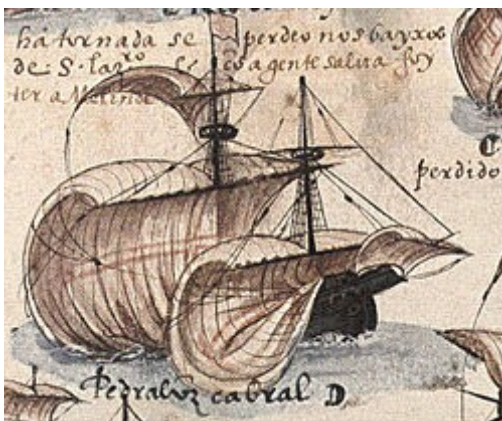 ha tornada se perdeo nos bayxos
de S. lazro e a gente salva foy
ter a Melinde
perdido
Pedralvz cabral D